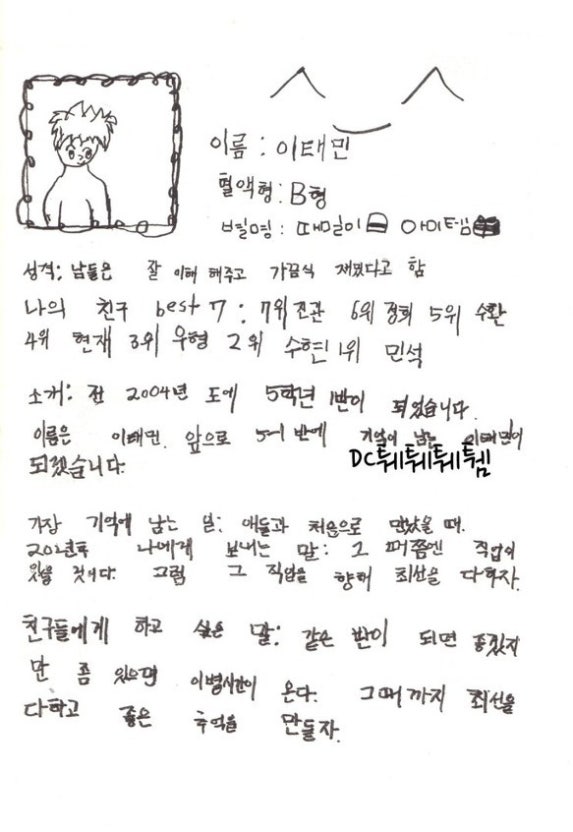 이름 : 이태민
혈액형 : B형
별명 : 때밀이 아이템
성격 : 남들은 잘 이해 해주고 가끔식 재밌다고 함
나의 친구 best 7 : 7위 진관 6위 정희 5위 수환
4위 현재 3위 우형 2위 수현 1위 민석
소개 : 전 2004년 도에 5학년 1반이 되었습니다.
이름은 이태민. 앞으로 5-1 반에 기억이 남는 이태민이
되겠습니다.
DC튀튀튀튐
가장 기억에 남는 일 : 애들과 처음으로 만났을 때.
20년후 나에게 보내는 말 : 그 때쯤엔 직업이
있을 것이다. 그럼 그 직업을 향해 최선을 다하자.
친구들에게 하고 싶은 말 : 같은 반이 되면 좋겠지
만 좀 있으면 이별시간이 온다. 그때까지 최선을
다하고 좋은 추억을 만들자.